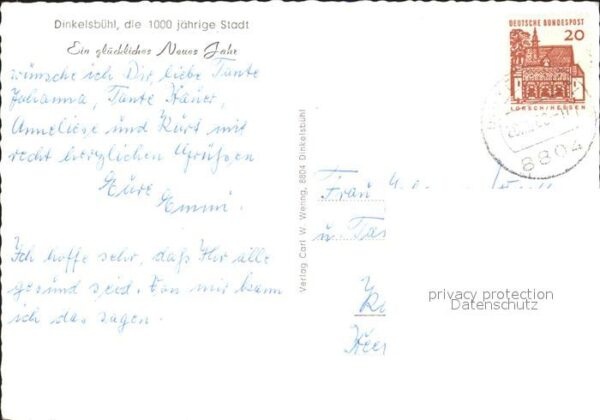 Dinkelsbühl, die 1000 jährige Stadt
Ein glückliches Neues Jahr
wünsche ich Dir, liebe Tante
Johanna, Tante
Anneliese und Kurt mit
recht herzlichen Grüßen
Eure
Emmi.
Ich hoffe sehr, daß Ihr alle
gesund seid. Von mir kann
ich das sagen.
Verlag Carl W. Wening, 8804 Dinkelsbühl
DEUTSCHE BUNDESPOST
20
LORSCH/HESSEN
8804
Frau
u. Tan
privacy protection
Datenschutz